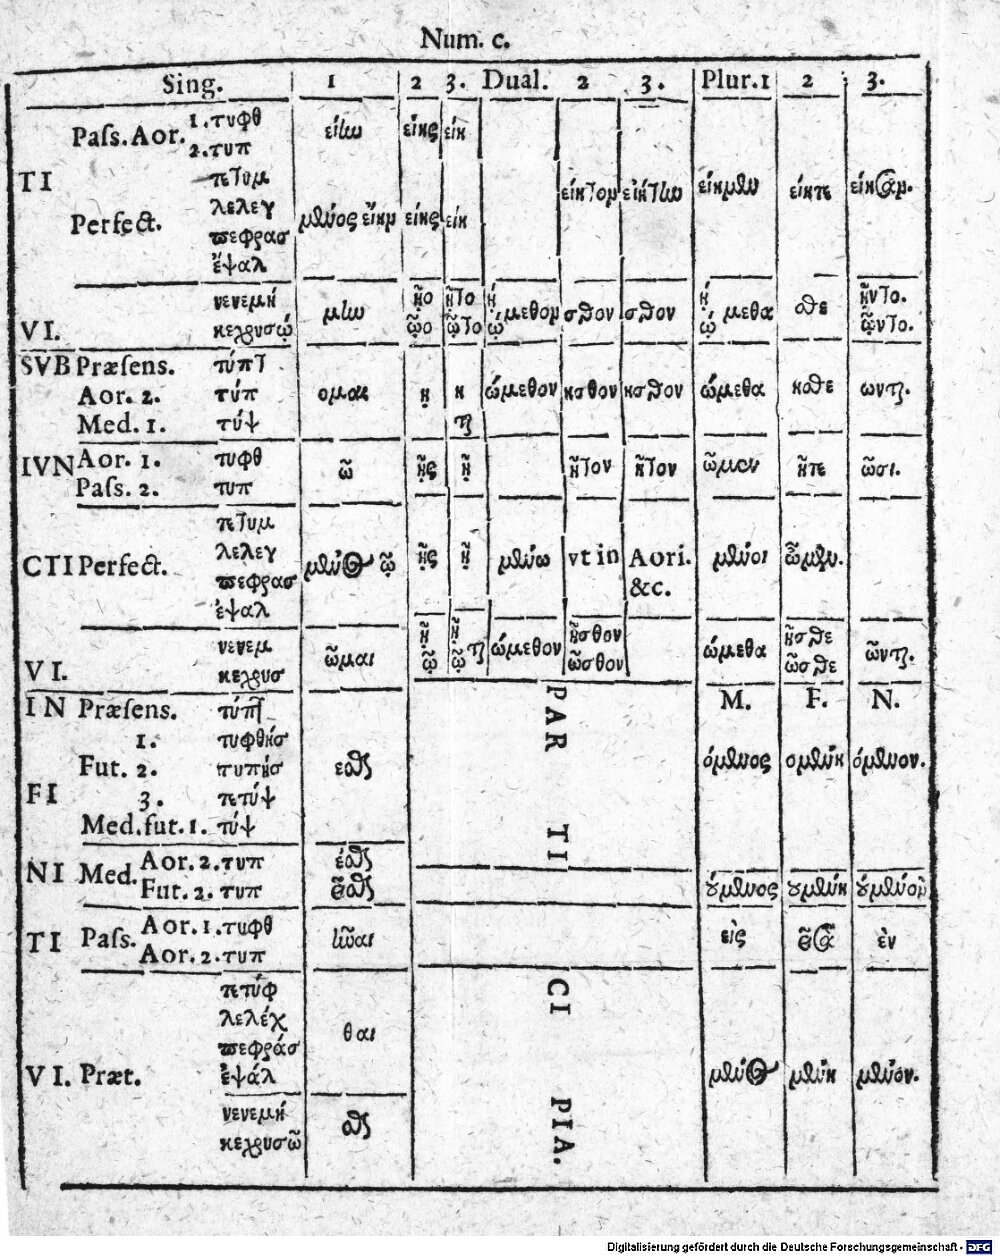 Num. c.
Sing. 1 2 3. Dual. 2 3. Plur. 1 2 3.
Paſs. Aor. 1. τυφθ είω είης είη
2. τυπ
TI
πετυμ είητον ειήτω είημεν είητε είησαν.
Perfect. λελεγ μένος είην είης είη
πεφρας
ἔψαλ
νενεμή μω ῇο ῇτο μεθον σθον σθον μεθα σθε ῇντο.
VI. κεχρυσῴ ῷο ῷτο ῷντο.
SVB Præſens. τύπτ
Aor. 2. τύπ ομαι η η ώμεθον ησθον ησθον ώμεθα ησθε ωνται.
Med. 1. τύψ ται
IVN Aor. 1. τυφθ ῶ ῇς ῇ ῆτον ῆτον ῶμεν ῆτε ῶσι.
Paſs. 2. τυπ
πετυμ
λελεγ
CTI Perfect. μένος ῶ ῇς ῇ μένω vt in Aori. μένοι ὦμεν.
πεφρασ &c.
ἐψαλ
νενεμ ῶμαι ώμεθον ῆσθον ώμεθα ῆσθε ῶνται.
VI. κεχρυσ ῶσθον ῶσθε
IN Præſens. τύπτ PAR M. F. N.
1. τυφθήσ
Fut. 2. τυπήσ εσθαι όμενος ομένη όμενον.
FI 3. πετύψ
Med. fut. 1. τύψ TI
NI Med. Aor. 2. τυπ έσθαι
Fut. 2. τυπ εῖσθαι ούμενος ουμένη ούμενον
TI Paſs. Aor. 1. τυφθ ῆναι εὶς εῖσα ὲν
Aor. 2. τυπ
πετύφ CI
λελέχ θαι
πεφράσ
VI. Præt. ἐψάλ μένος μένη μένον.
νενεμή PIA.
κεχρυσῶ σθαι
Digitalisierung gefördert durch die Deutsche Forschungsgemeinschaft - DFG